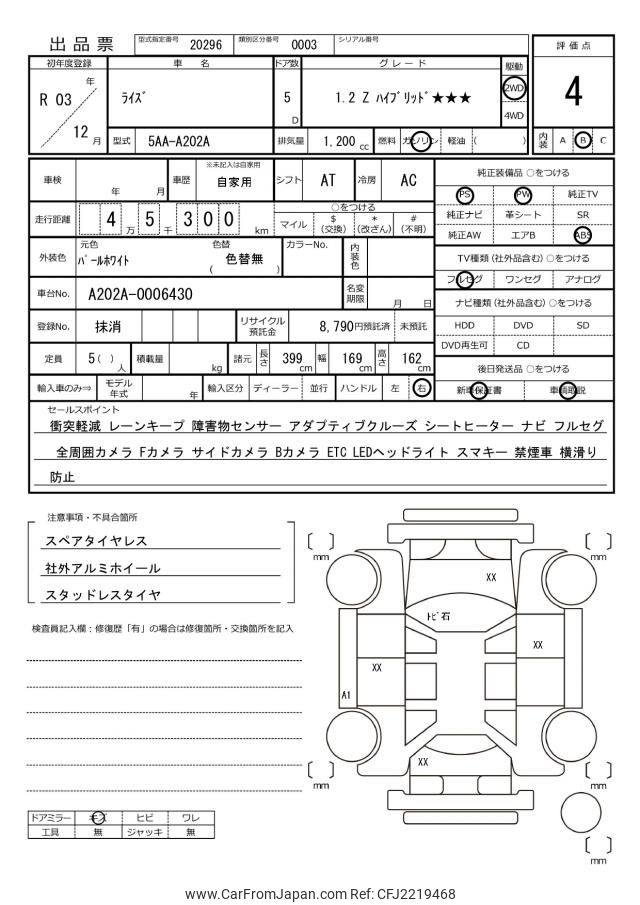 出品票 型式指定番号 20296 類別区分番号 0003 シリアル番号
評価点
4
初年度登録 車名 ドア数 グレード 駆動
R 03 年 12 月
ライズ 5 D 1.2 Z ハイブリッド★★★ 2WD
4WD
型式 5AA-A202A 排気量 1,200 cc 燃料 ガソリン 軽油 ( ) 内装 A B C
車検 年 月 車歴 ※未記入は自家用 自家用 シフト AT 冷房 AC
走行距離 4 万 5 千 300 km
○をつける
マイル $(交換) *(改ざん) #(不明)
外装色 元色 パールホワイト 色替 ( 色替無 ) カラーNo. 内装色
車台No. A202A-0006430 名変期限 月 日
登録No. 抹消 リサイクル預託金 8,790円預託済 未預託
定員 5( )人 積載量 kg 諸元 長さ 399 cm 幅 169 cm 高さ 162 cm
輸入車のみ⇒ モデル年式 年 輸入区分 ディーラー 並行 ハンドル 左 右
純正装備品 ○をつける
PS PW 純正TV
純正ナビ 革シート SR
純正AW エアB ABS
TV種類(社外品含む) ○をつける
フルセグ ワンセグ アナログ
ナビ種類(社外品含む) ○をつける
HDD DVD SD
DVD再生可 CD
後日発送品 ○をつける
新車保証書 車輌取説
セールスポイント
衝突軽減 レーンキープ 障害物センサー アダプティブクルーズ シートヒーター ナビ フルセグ
全周囲カメラ Fカメラ サイドカメラ Bカメラ ETC LEDヘッドライト スマキー 禁煙車 横滑り
防止
注意事項・不具合箇所
スペアタイヤレス
社外アルミホイール
スタッドレスタイヤ
検査員記入欄：修復歴「有」の場合は修復箇所・交換箇所を記入
mm mm
XX
トビ石
XX
XX
A1
XX
mm mm
mm
ドアミラー キズ ヒビ ワレ
工具 無 ジャッキ 無
www.CarFromJapan.com Ref: CFJ2219468